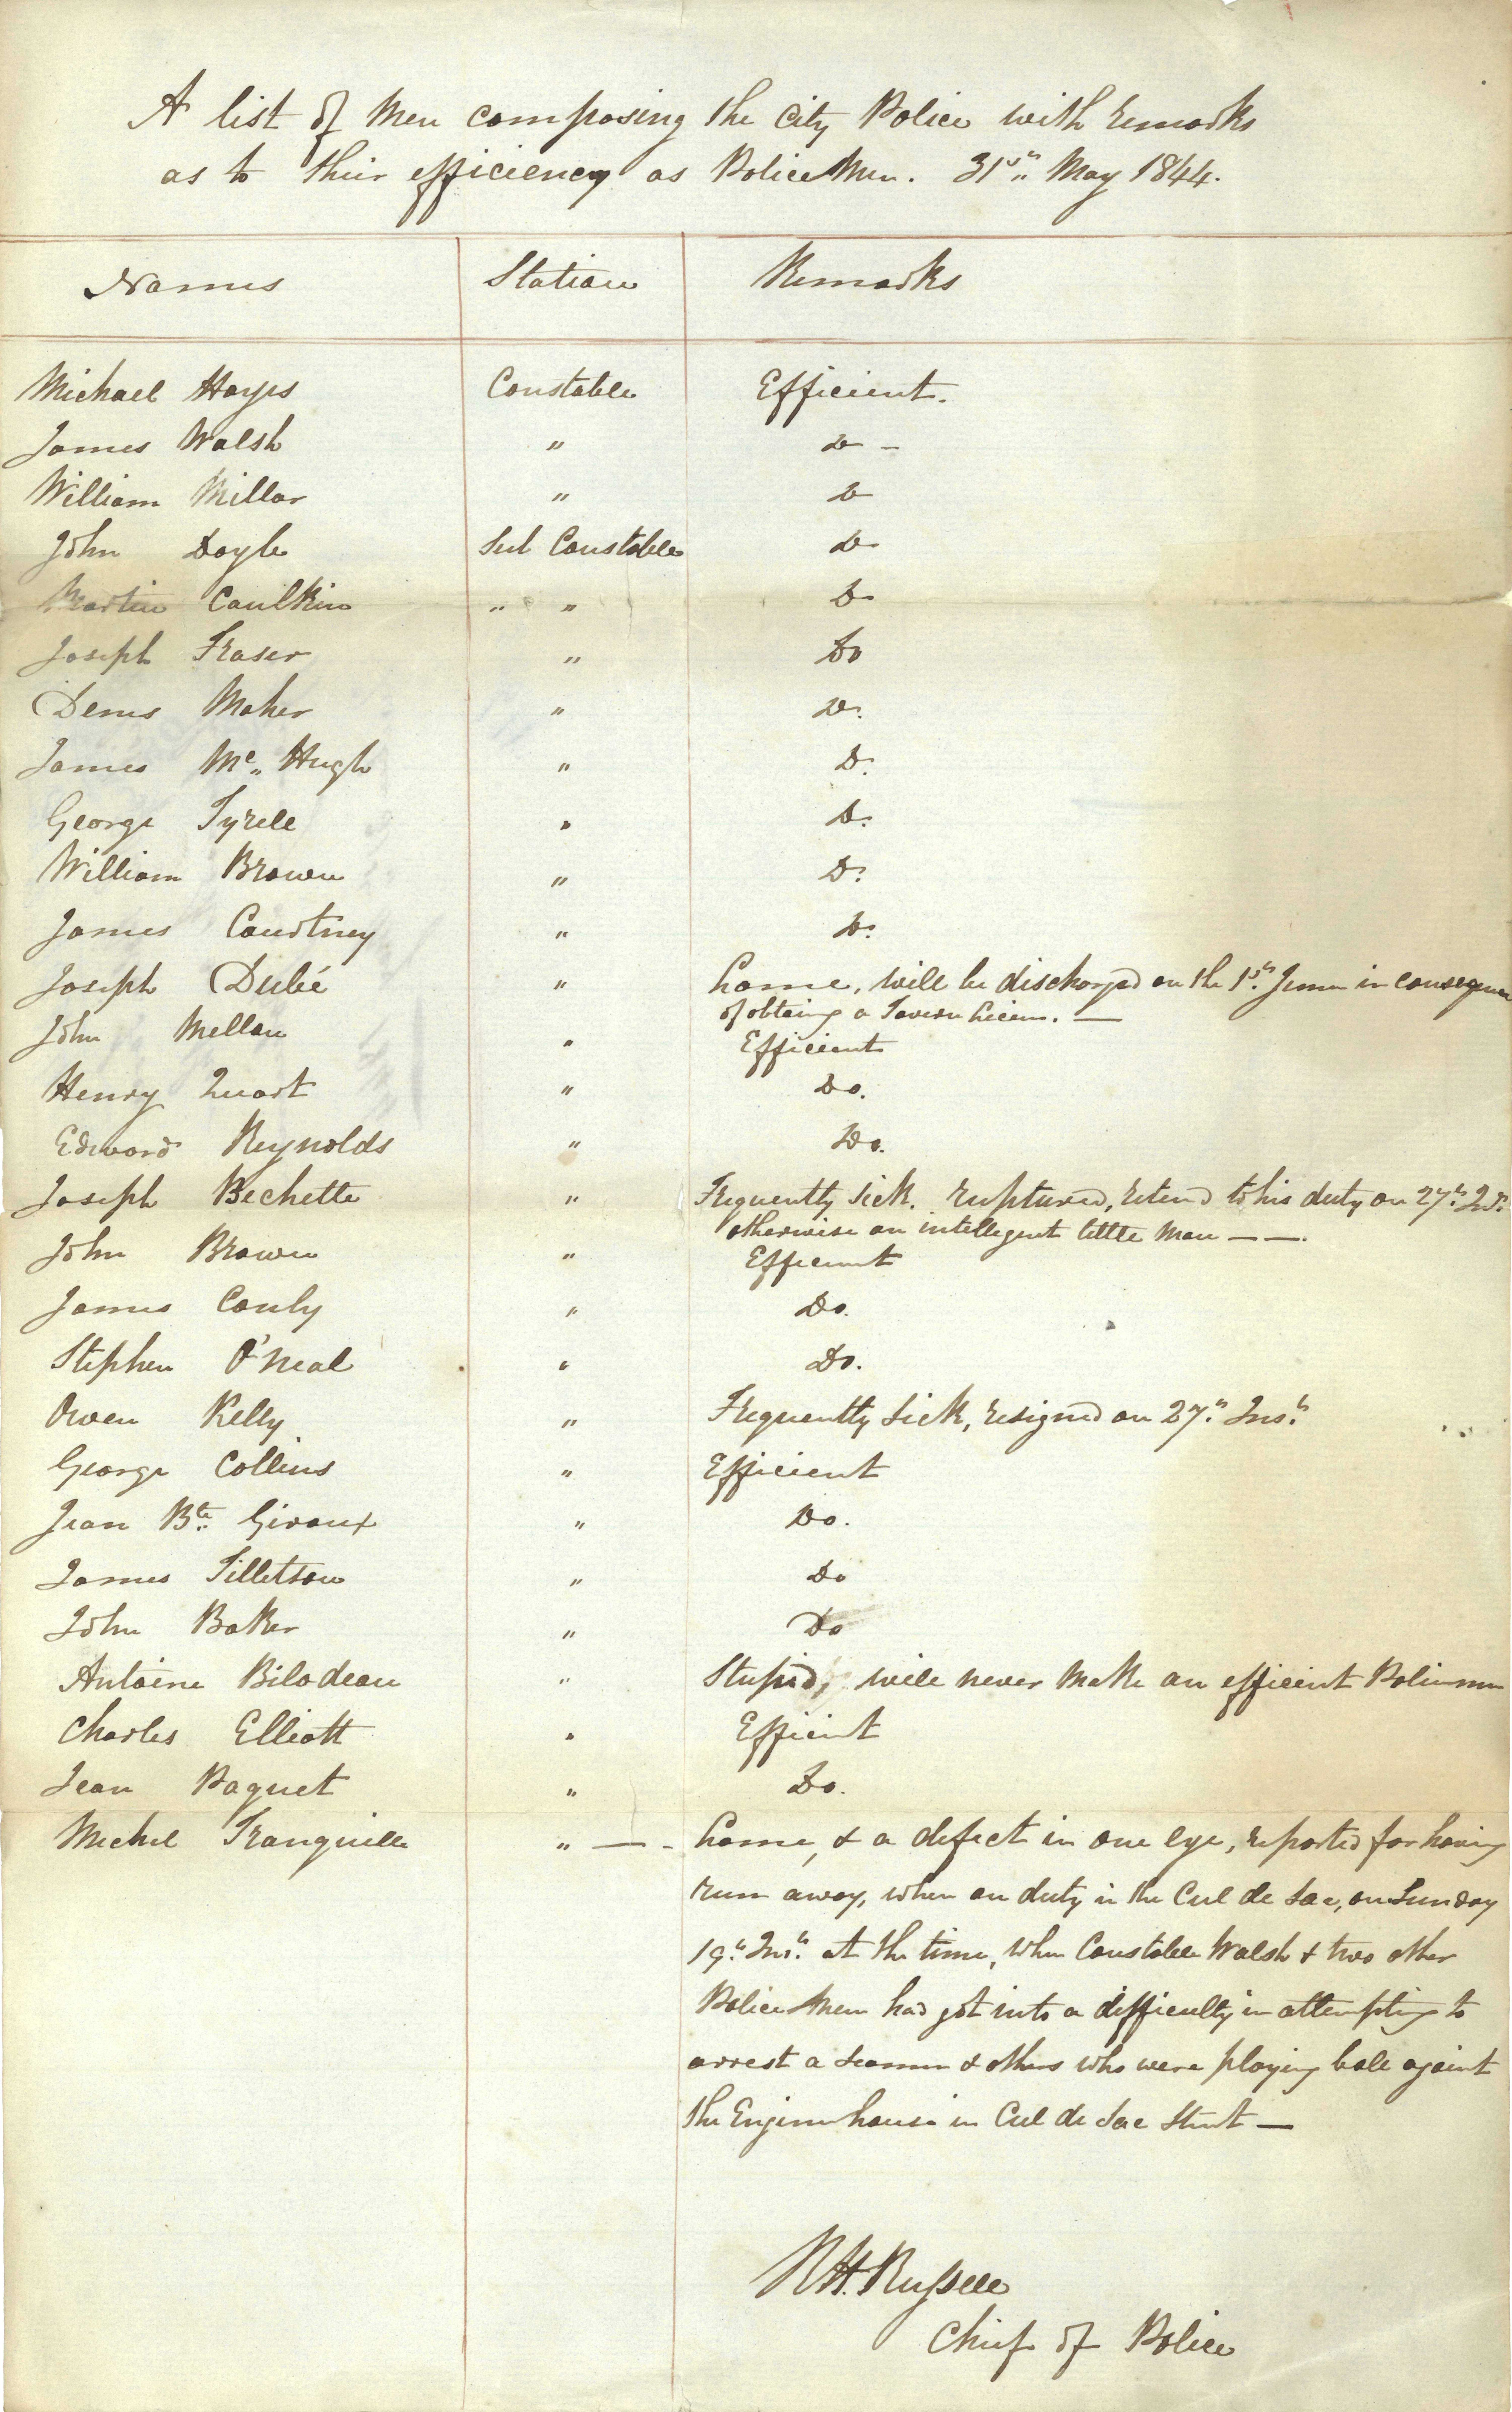 A list of Men composing the City Police with remarks
as to their efficiency as Police Men. 31st May 1844.
Names Station Remarks
Michael Hayes Constable Efficient.
James Walsh " Do -
William Millar " Do
John Doyle Sub Constable Do
Martin Caulkin " " Do
Joseph Fraser " Do
Denis Maher " Do.
James Mc Hugh " Do.
George Tyrell " Do.
William Brown " Do.
James Courtney " Do.
Joseph Dubé " Lame, will be discharged on the 1st June in consequence
of obtaing a Tavern Licens. —
John Mellon " Efficient
Henry Quart " Do.
Edward Reynolds " Do.
Joseph Bechette " Frequently Sick. ruptured, retund to his duty on 27th Inst.
otherwise an intellegent little Man — —.
John Brown " Efficient
James Conly " Do.
Stephen O'Neal " Do.
Owen Kelly " Frequently Sick, resigned on 27th Inst
George Collins " Efficient
Jean Bte Giroux " Do.
James Tilletson " Do
John Baker " Do
Antoine Bilodeau " Stupid, will never make an efficient Policeman
Charles Elliott " Efficient
Jean Paquet " Do.
Michel Tranquille " — - Lame, & a defect in one eye, reported for having
run away, when on duty in the Cul de Sac, on Sunday
19th Inst. at the time, when Constable Walsh & two other
Police Men had got into a difficulty in attempting to
arrest a seaman & others who were playing ball against
the Engine house in Cul de Sac Street —
RH. Russell
Chief of Police